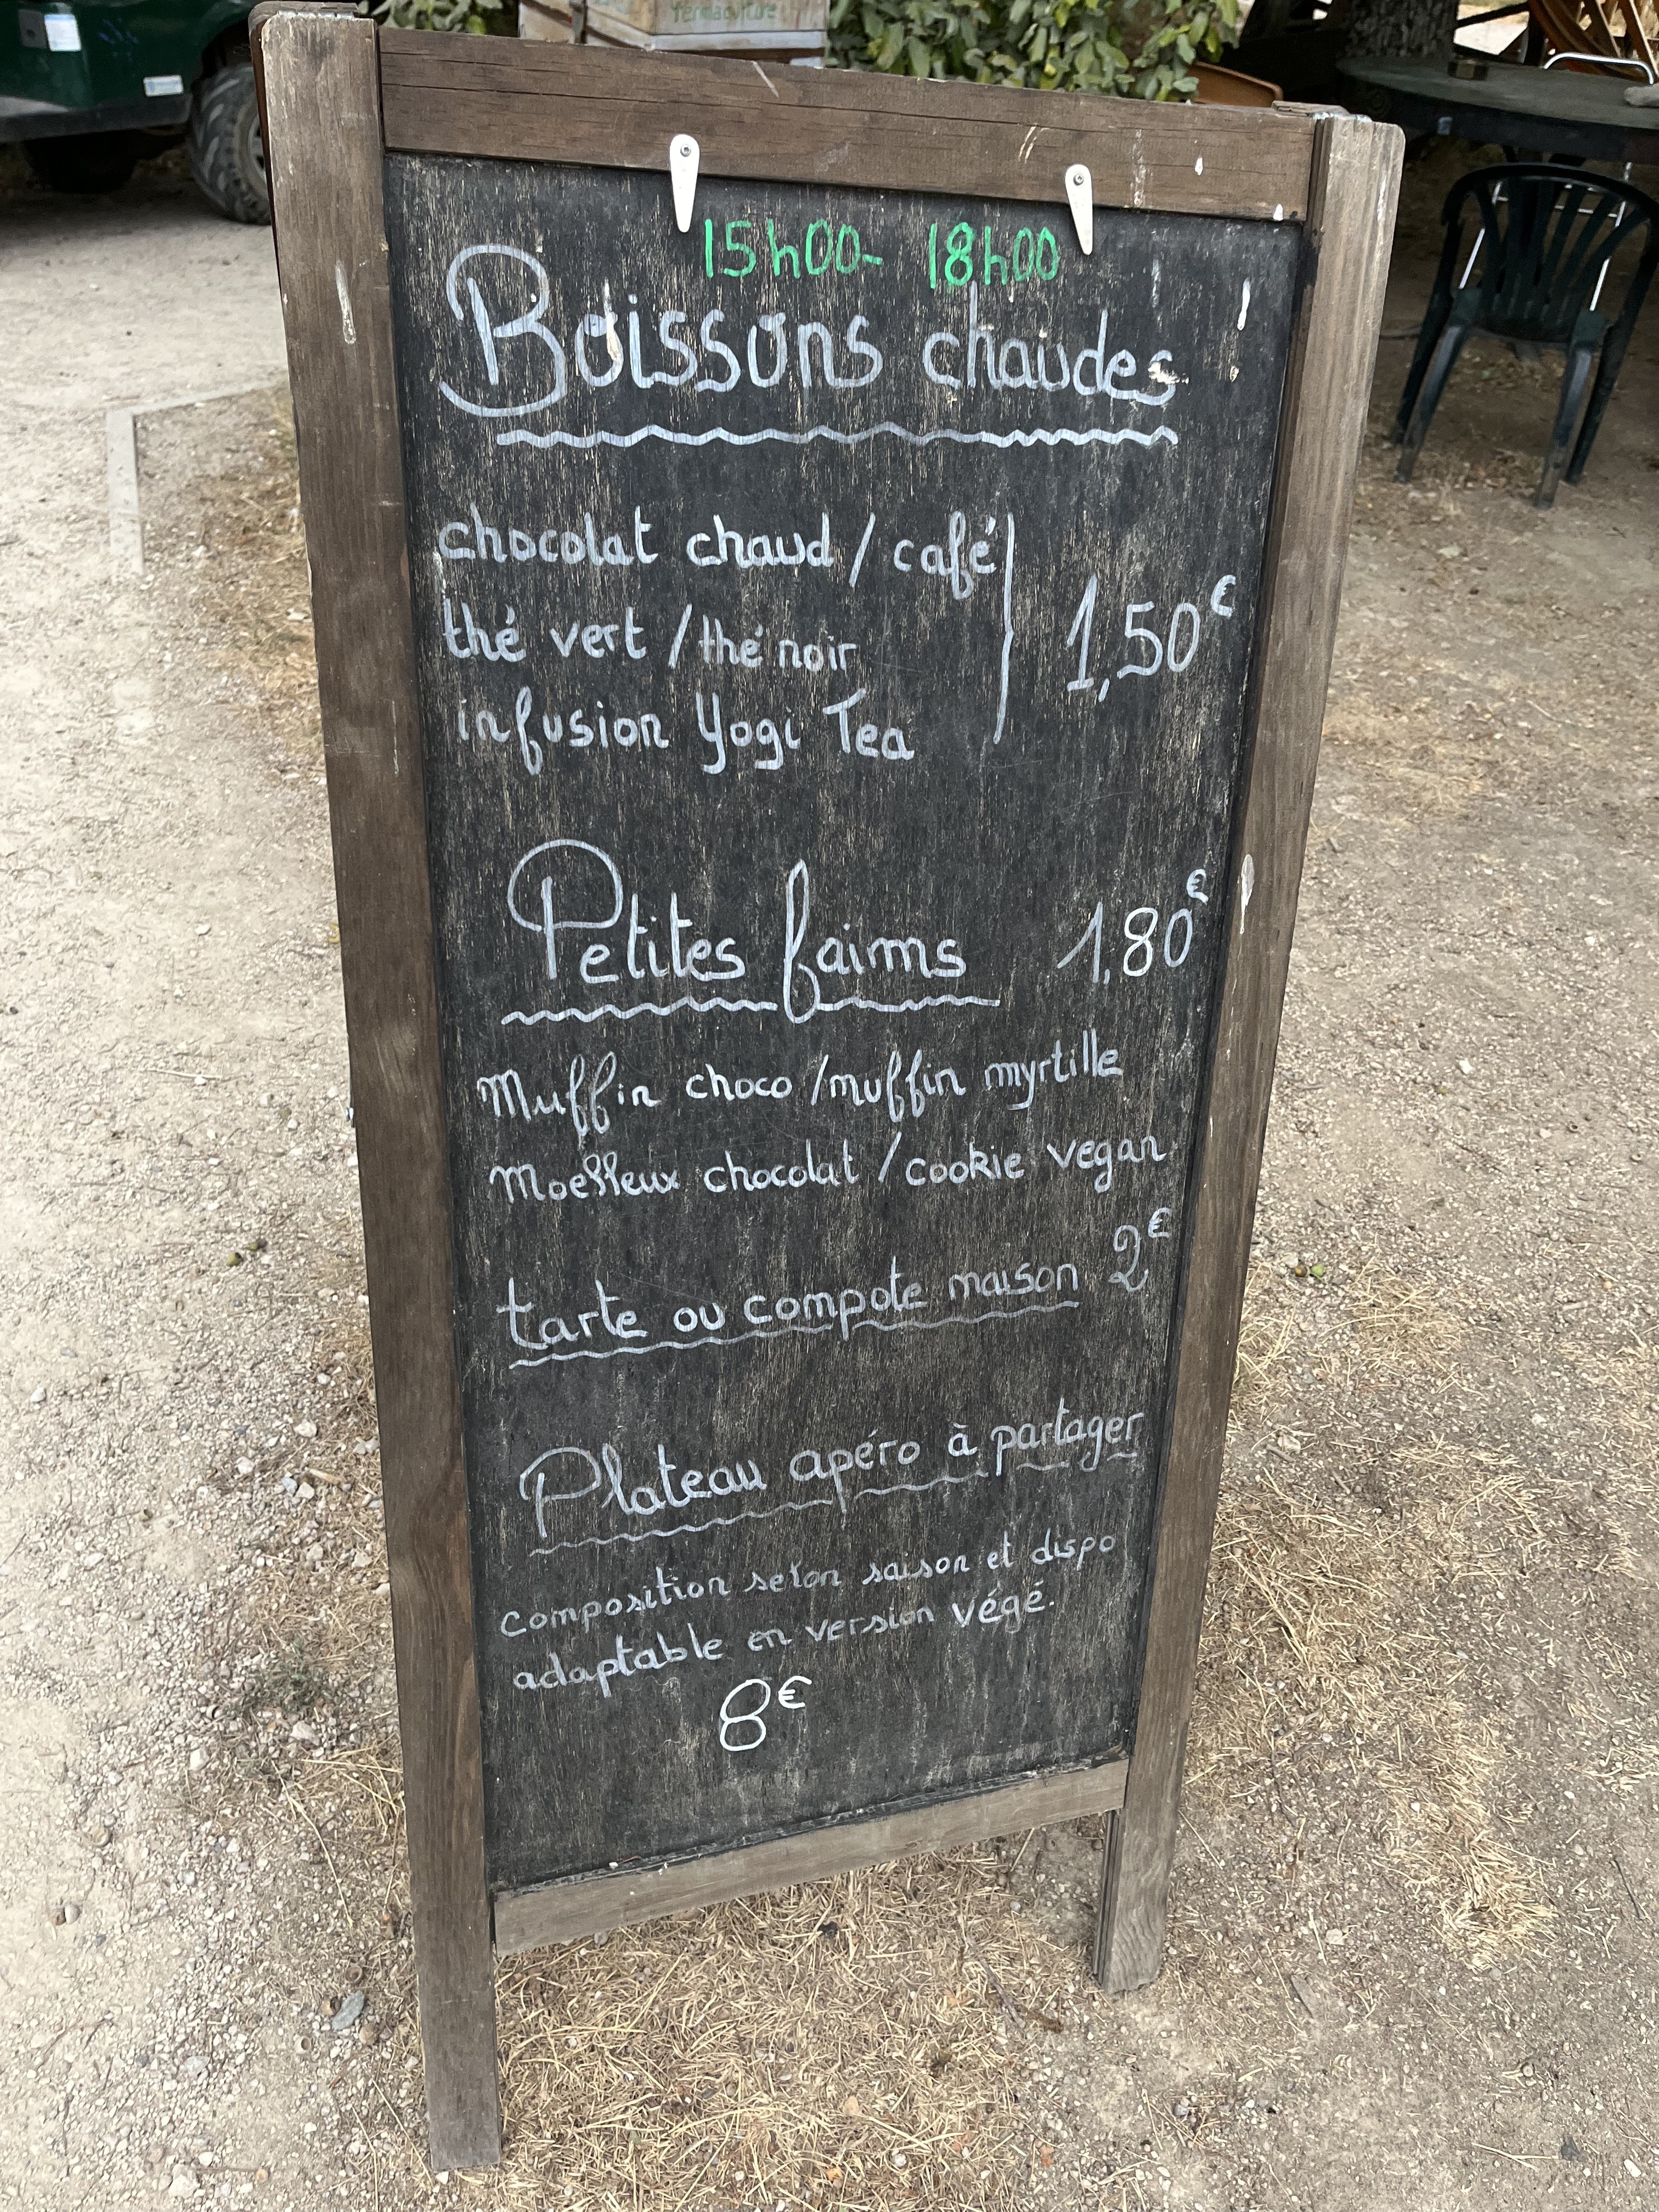 Permaculture
15h00- 18h00
Boissons chaudes
chocolat chaud / café
thé vert / thé noir
1,50€
infusion Yogi Tea
Petites faims 1,80€
Muffin choco / muffin myrtille
Moelleux chocolat / cookie vegan
tarte ou compote maison 2€
Plateau apéro à partager
composition selon saison et dispo
adaptable en version végé.
8€